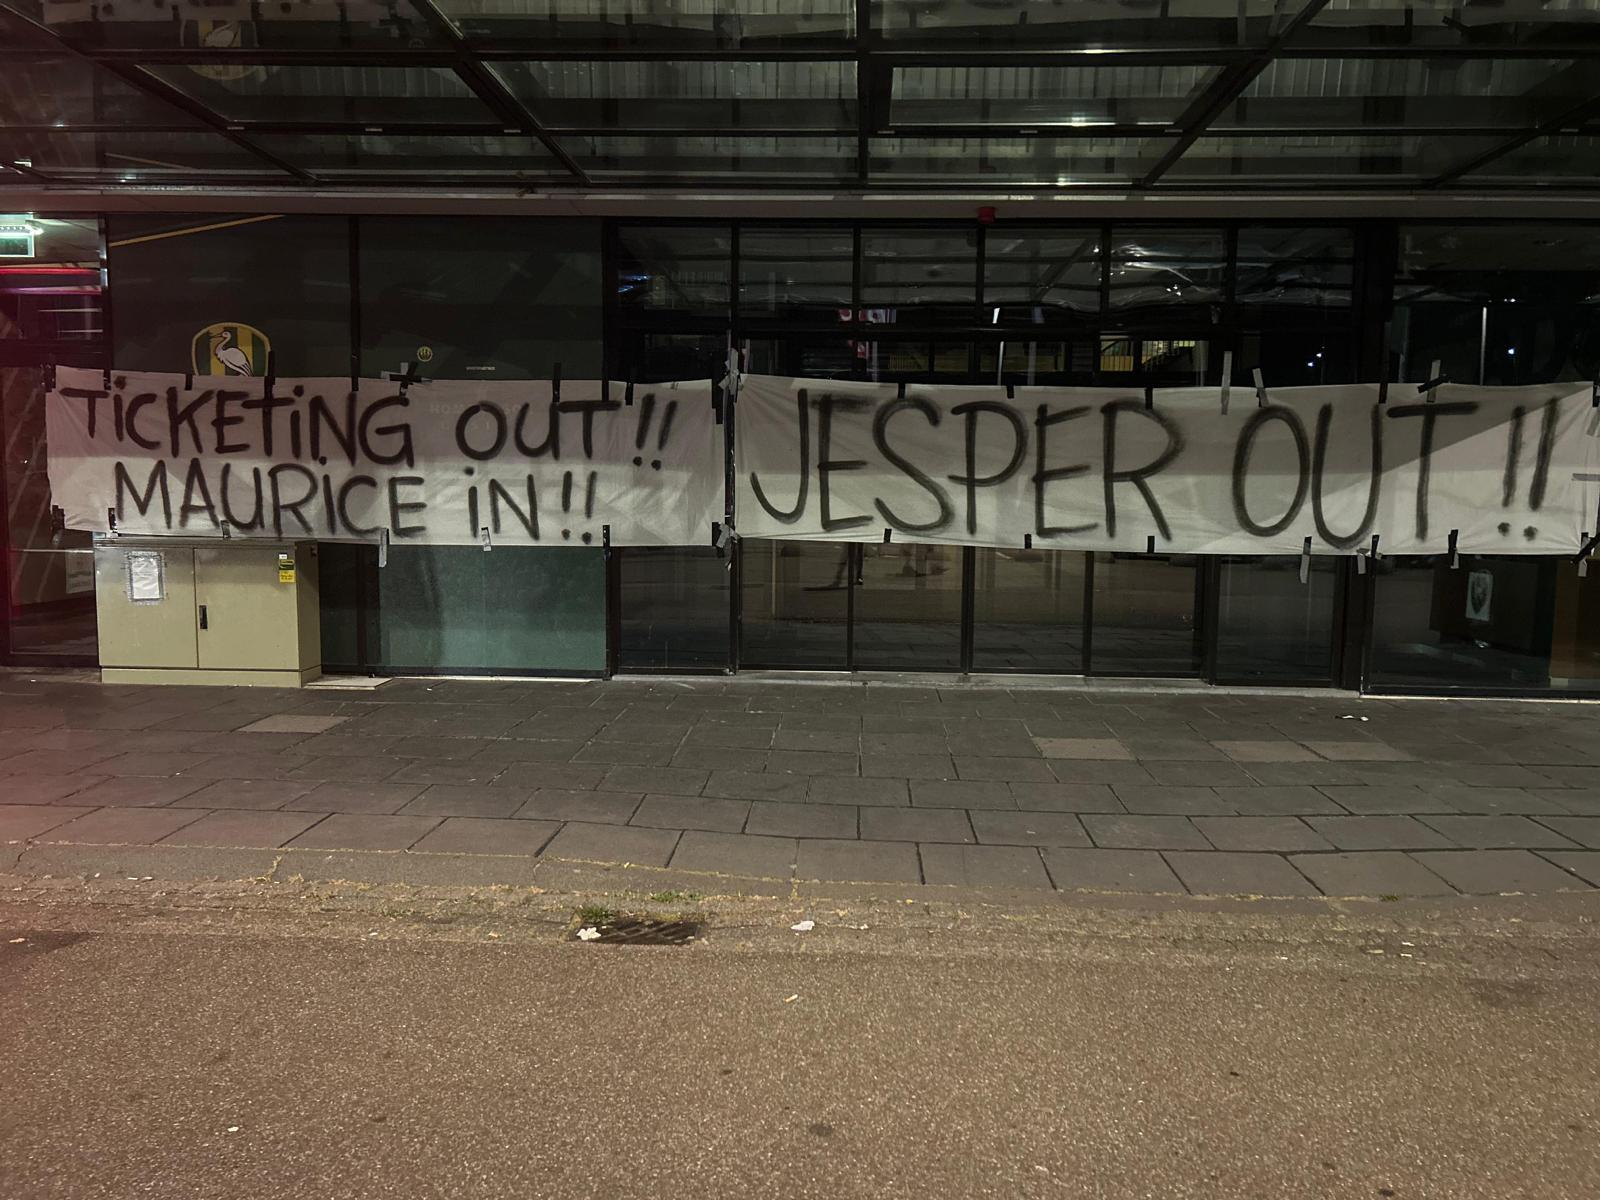 TiCKETiNG OUT!!
MAURiCE iN!!
JESPER OUT!!